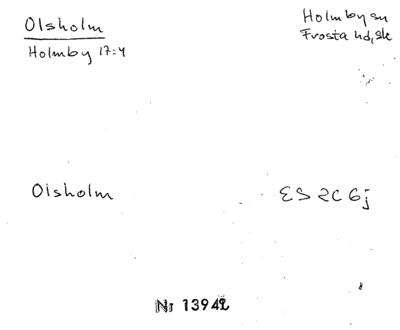 Olsholm
Holmby 17:4
Holmby sn
Frosta hd, Sk
Olsholm
ES 2C 6j
Nr 13942